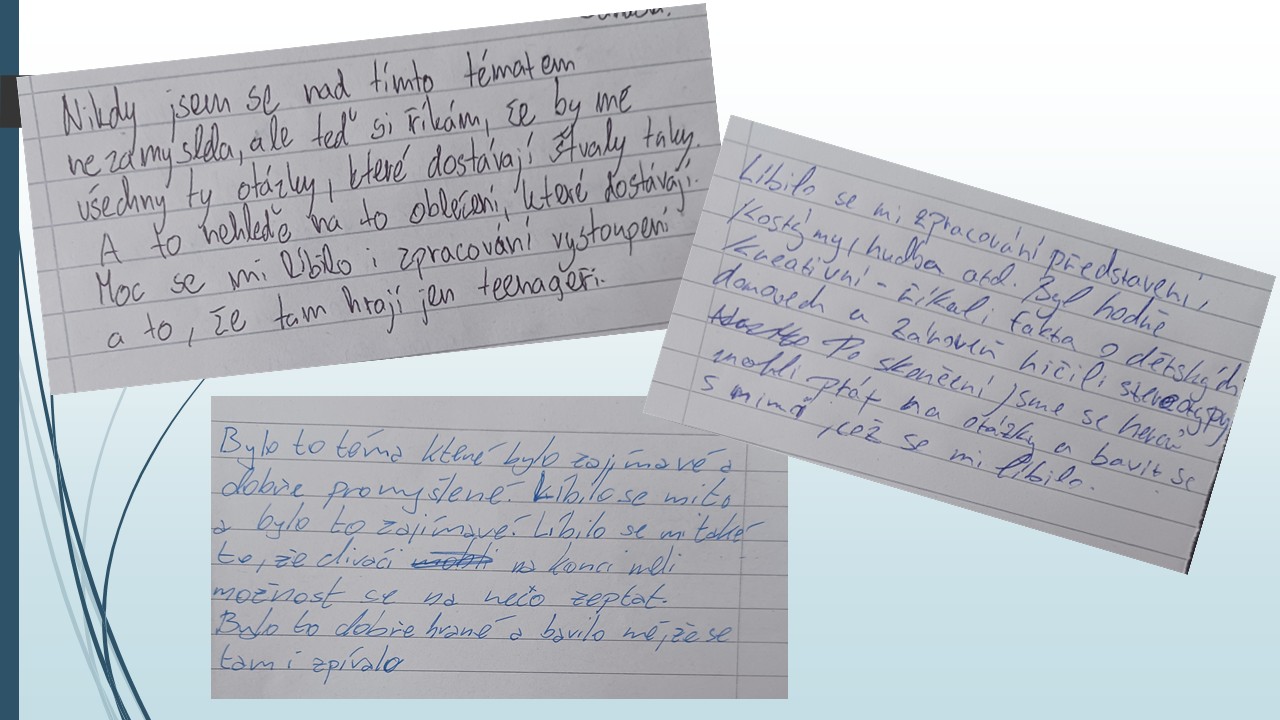 Nikdy jsem se nad tímto tématem
nezamyslela, ale teď si říkám, že by mě
všechny ty otázky, které dostávají štvaly taky.
A to nehledě na to oblečení, které dostávají.
Moc se mi líbilo i zpracování vystoupení
a to, že tam hrají jen teenageři.
Líbilo se mi zpracování představení,
kostýmy, hudba atd. Byl hodně
kreativní - říkali fakta o dětských
domovech a zároveň ničili stereotypy
Po skončení jsme se herců
mohli ptát na otázky a bavit se
s nimi, což se mi líbilo.
Bylo to téma které bylo zajímavé a
dobře promyšlené. Líbilo se mi to
a bylo to zajímavé. Líbilo se mi také
to, že diváci mohli na konci měli
možnost se na něčo zeptat.
Bylo to dobře hrané a bavilo mě, že se
tam i zpívalo